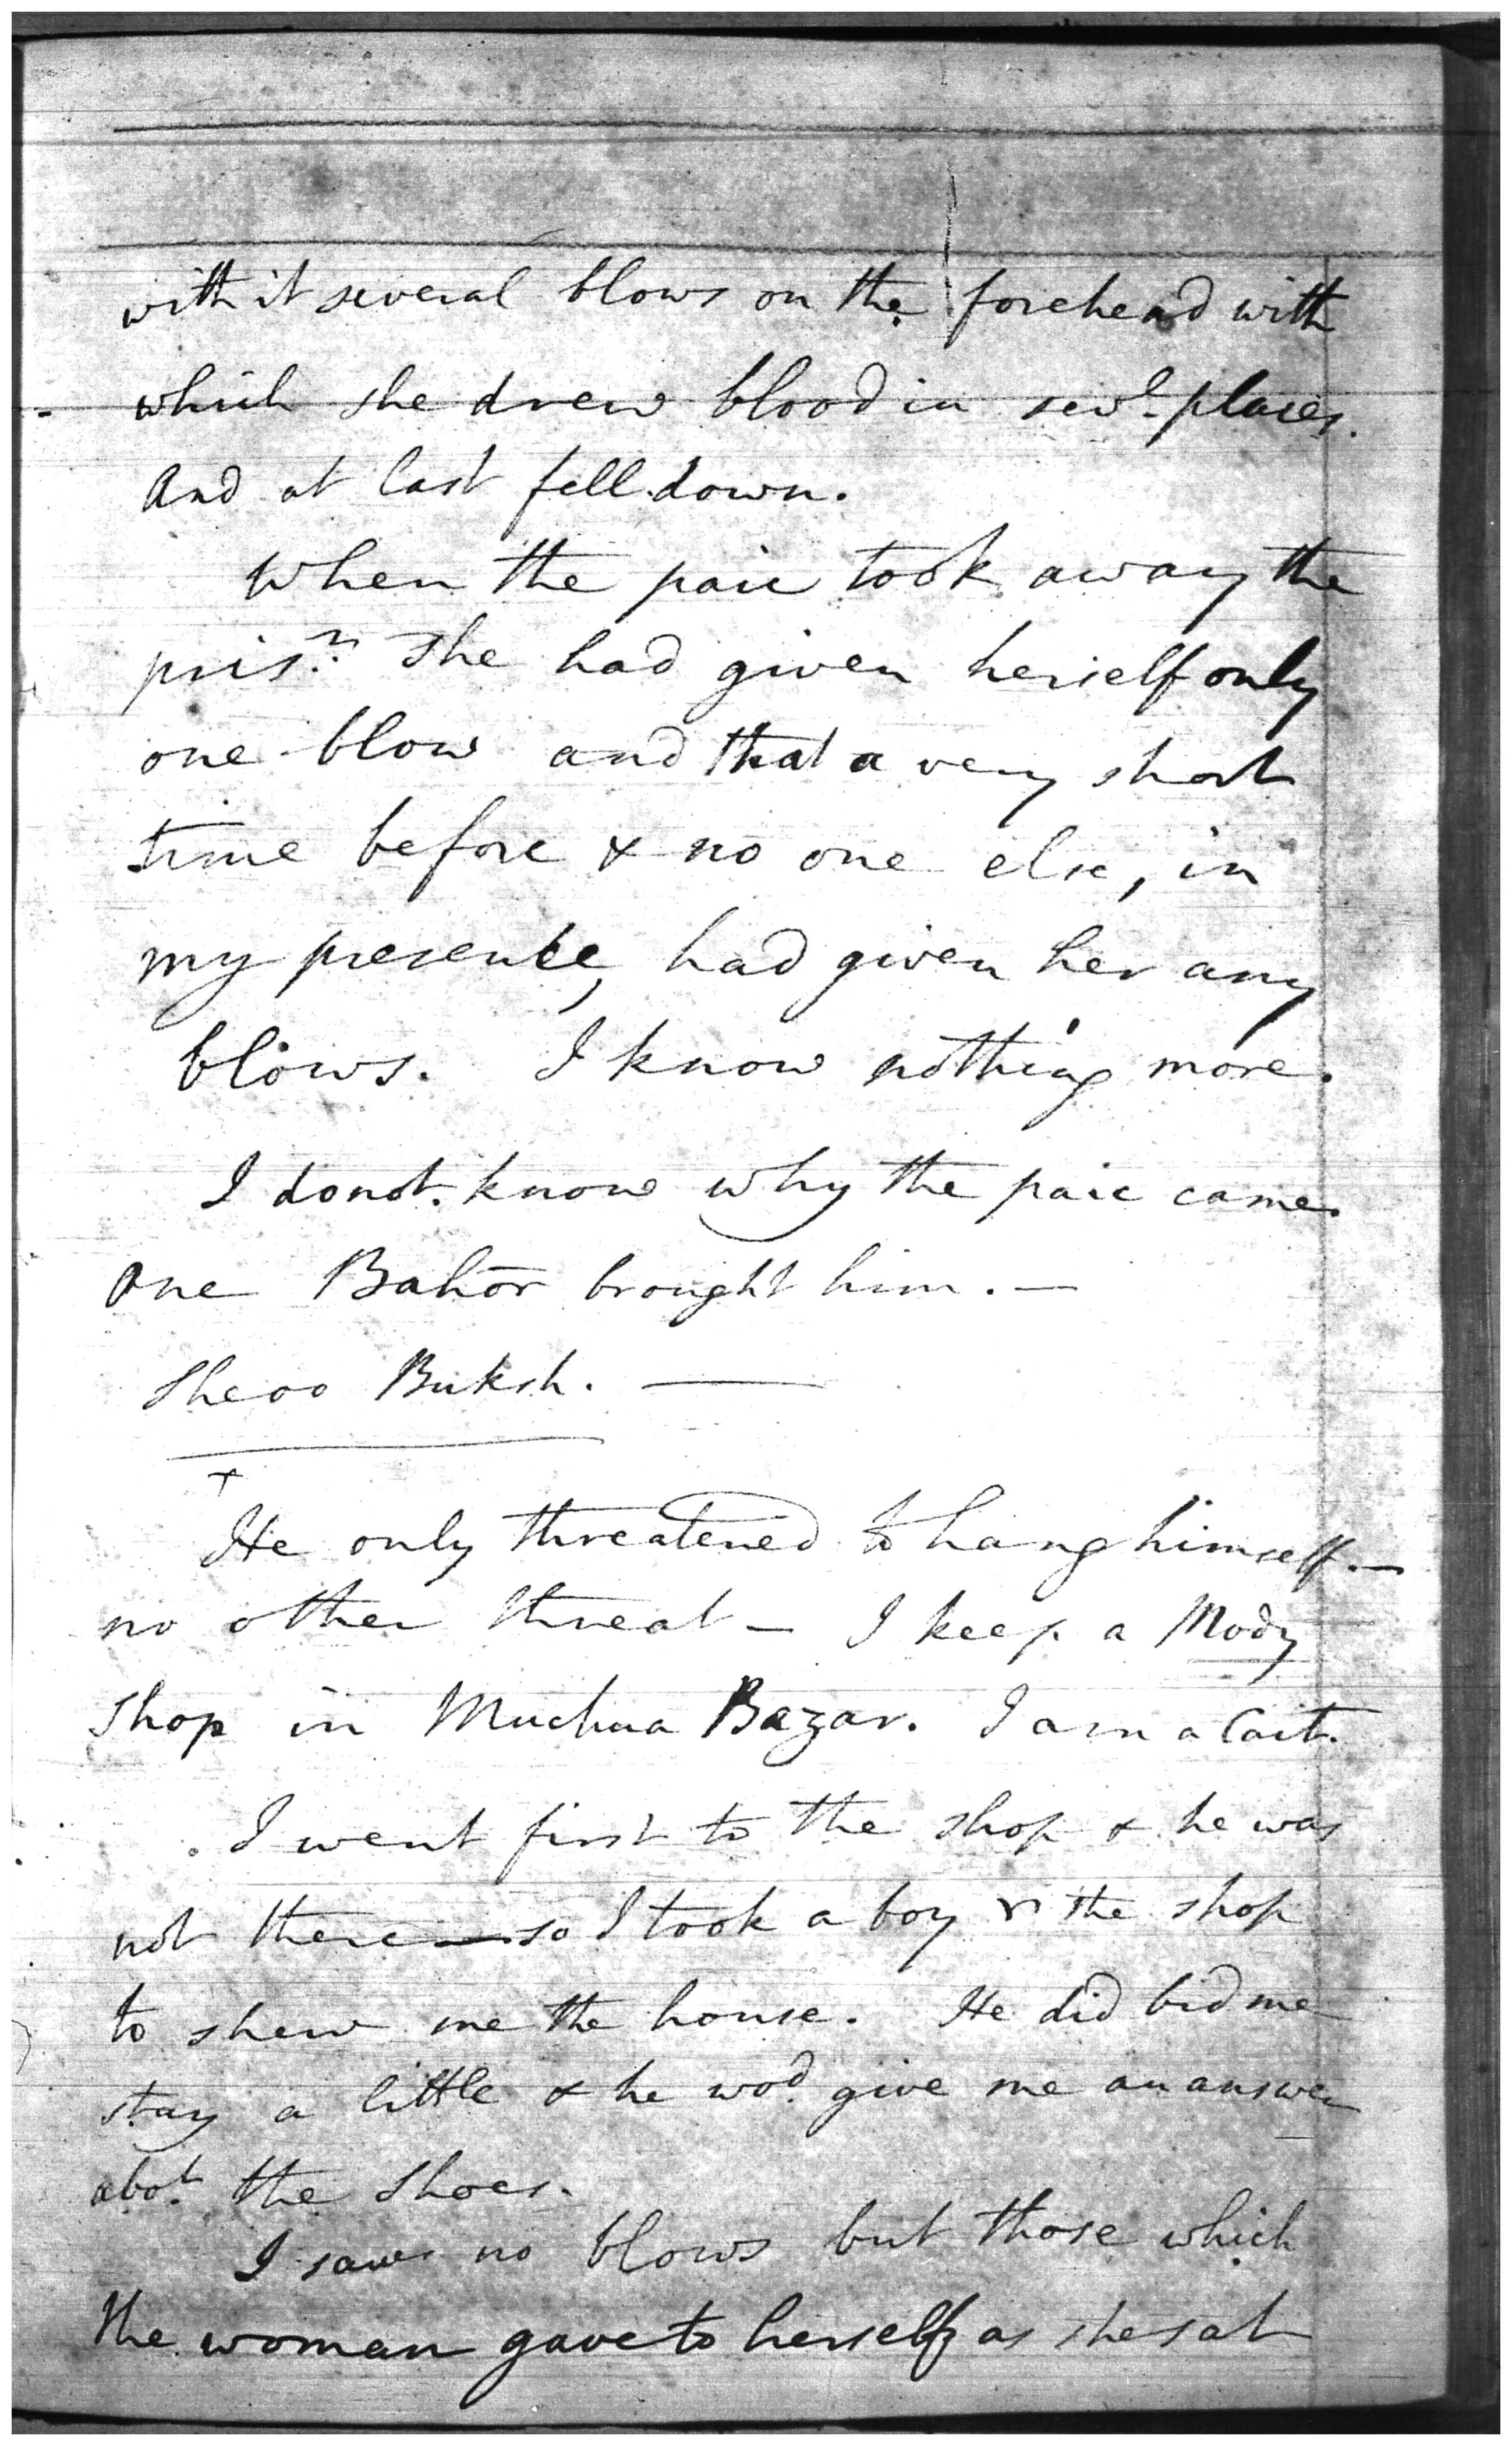 with it several blows on the forehead with
which she drew blood in sevl. places.
And at last fell down.
When the paic took away the
prisr. she had given herself only
one blow and that a very short
time before & no one else, in
my presence, had given her any
blows. I know nothing more.
I do not know why the paic came.
One Bahor brought him. —
Sheoo Buksh. —
+
He only threatened to hang himself. —
no other threat — I keep a Mody
shop in Muchua Bazar. I am a Cait.
I went first to the shop & he was
not there — so I took a boy the shop
to shew me the house. He did bid me
stay a little & he wod. give me an answer
abot. the shoes.
I saw no blows but those which
the woman gave to herself as she sat